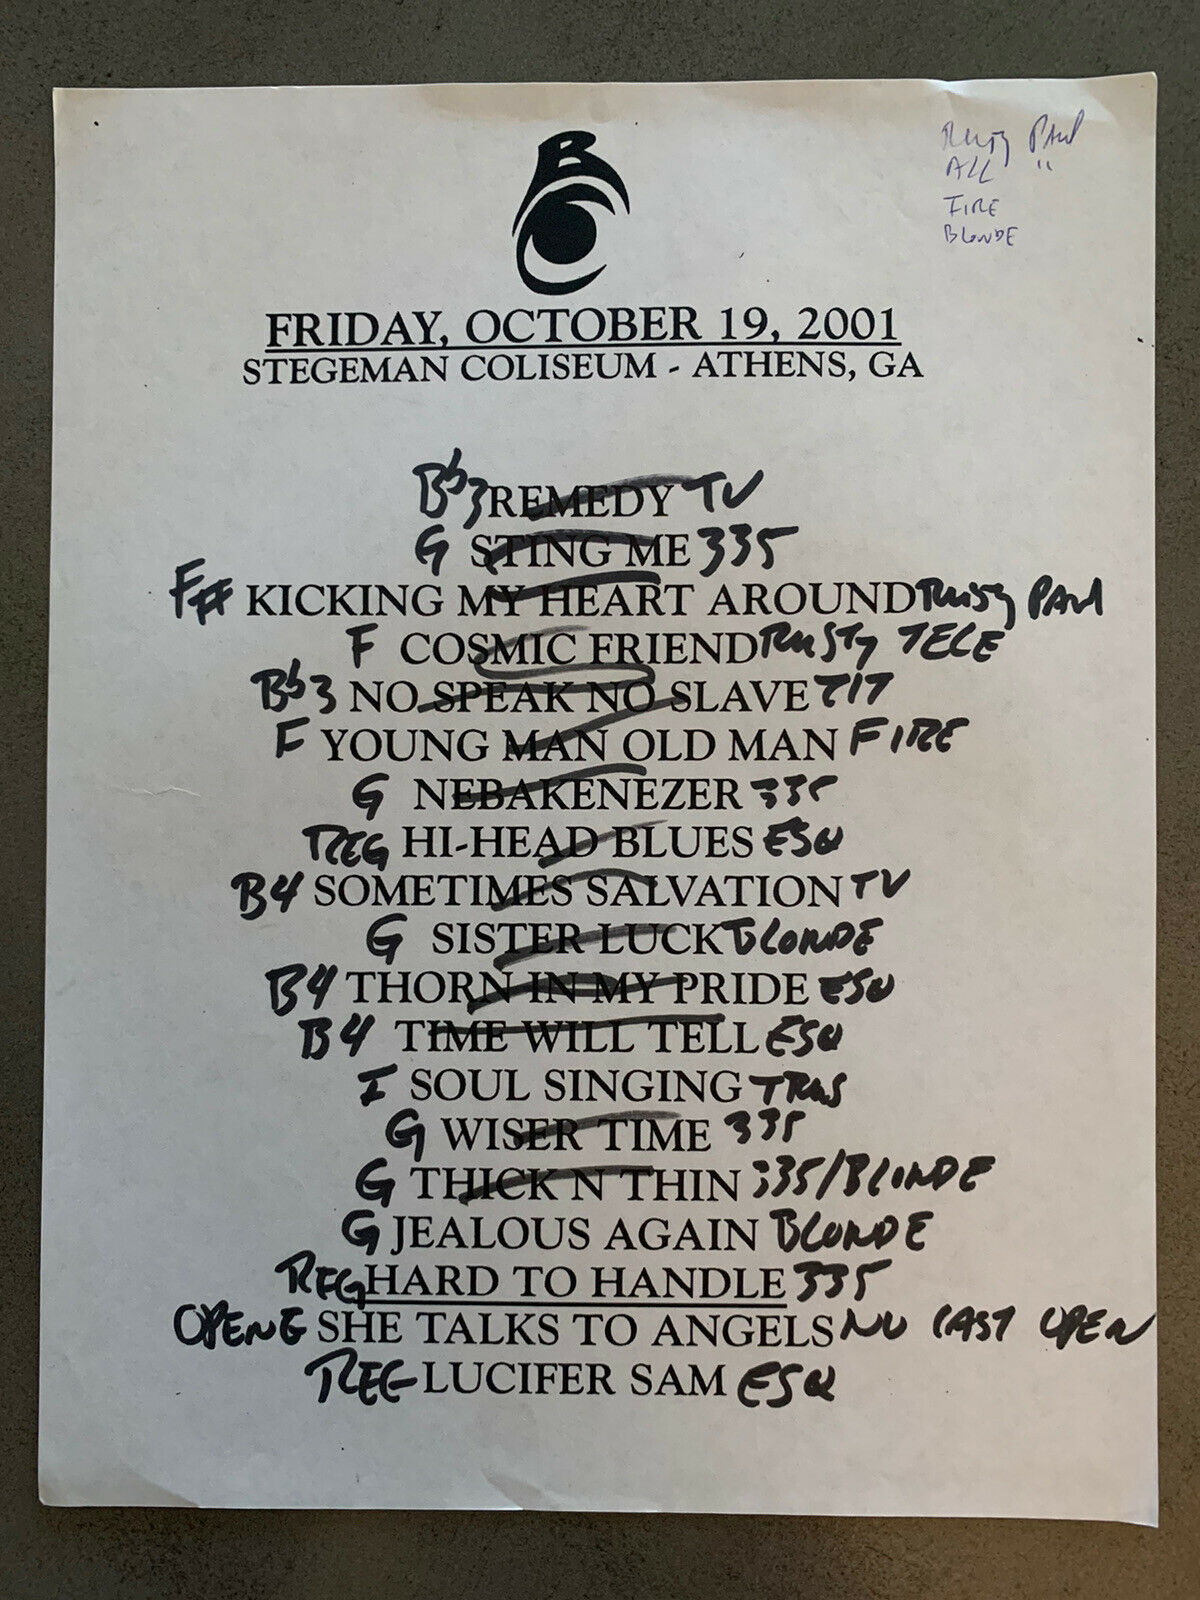 BC
Rusty Paul
ALL "
FIRE
BLONDE
FRIDAY, OCTOBER 19, 2001
STEGEMAN COLISEUM - ATHENS, GA
Bb3 REMEDY TV
G STING ME 335
F# KICKING MY HEART AROUND Rusty Paul
F COSMIC FRIEND RUSTY TELE
Bb3 NO SPEAK NO SLAVE 717
F YOUNG MAN OLD MAN FIRE
G NEBAKENEZER 335
REG HI-HEAD BLUES ESQ
B4 SOMETIMES SALVATION TV
G SISTER LUCK BLONDE
B4 THORN IN MY PRIDE ESQ
B4 TIME WILL TELL ESQ
I SOUL SINGING TRUS
G WISER TIME 335
G THICK N THIN 335/BLONDE
G JEALOUS AGAIN BLONDE
REG HARD TO HANDLE 335
OPEN E SHE TALKS TO ANGELS NU CAST OPEN
REG LUCIFER SAM ESQ